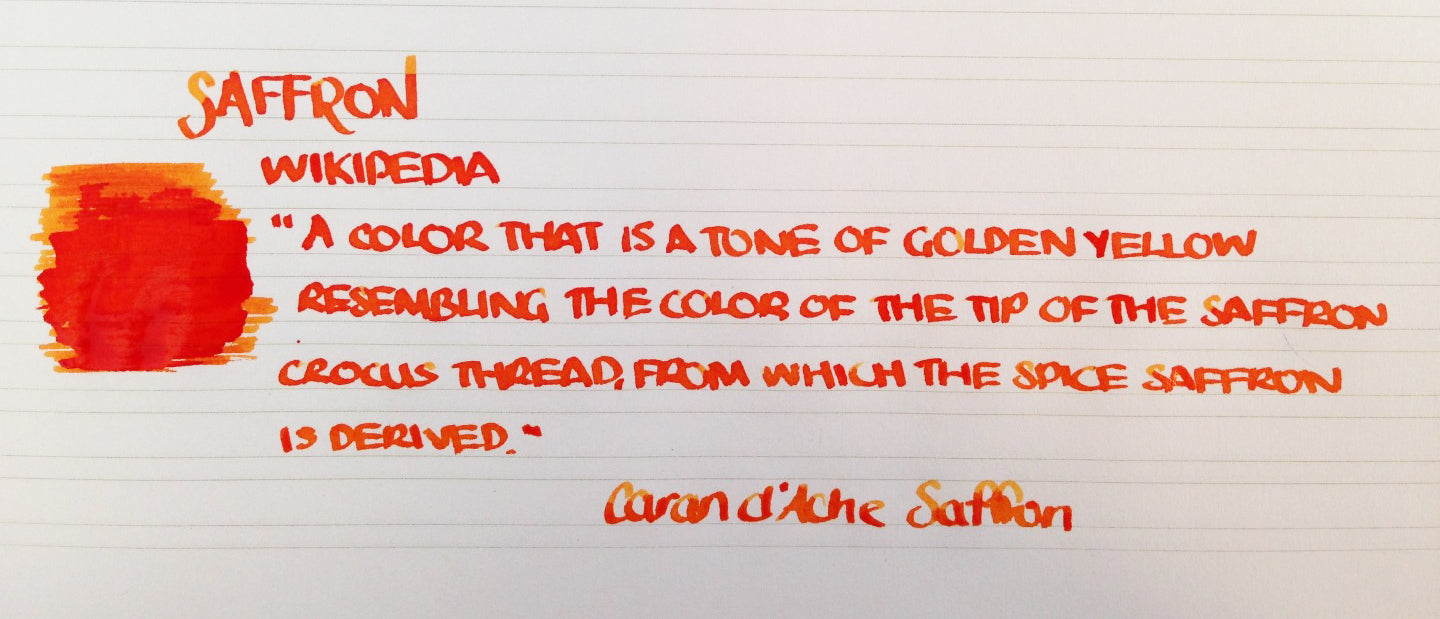 SAFFRON
WIKIPEDIA
"A COLOR THAT IS A TONE OF GOLDEN YELLOW
RESEMBLING THE COLOR OF THE TIP OF THE SAFFRON
CROCUS THREAD, FROM WHICH THE SPICE SAFFRON
IS DERIVED."
Caran d'Ache Saffron